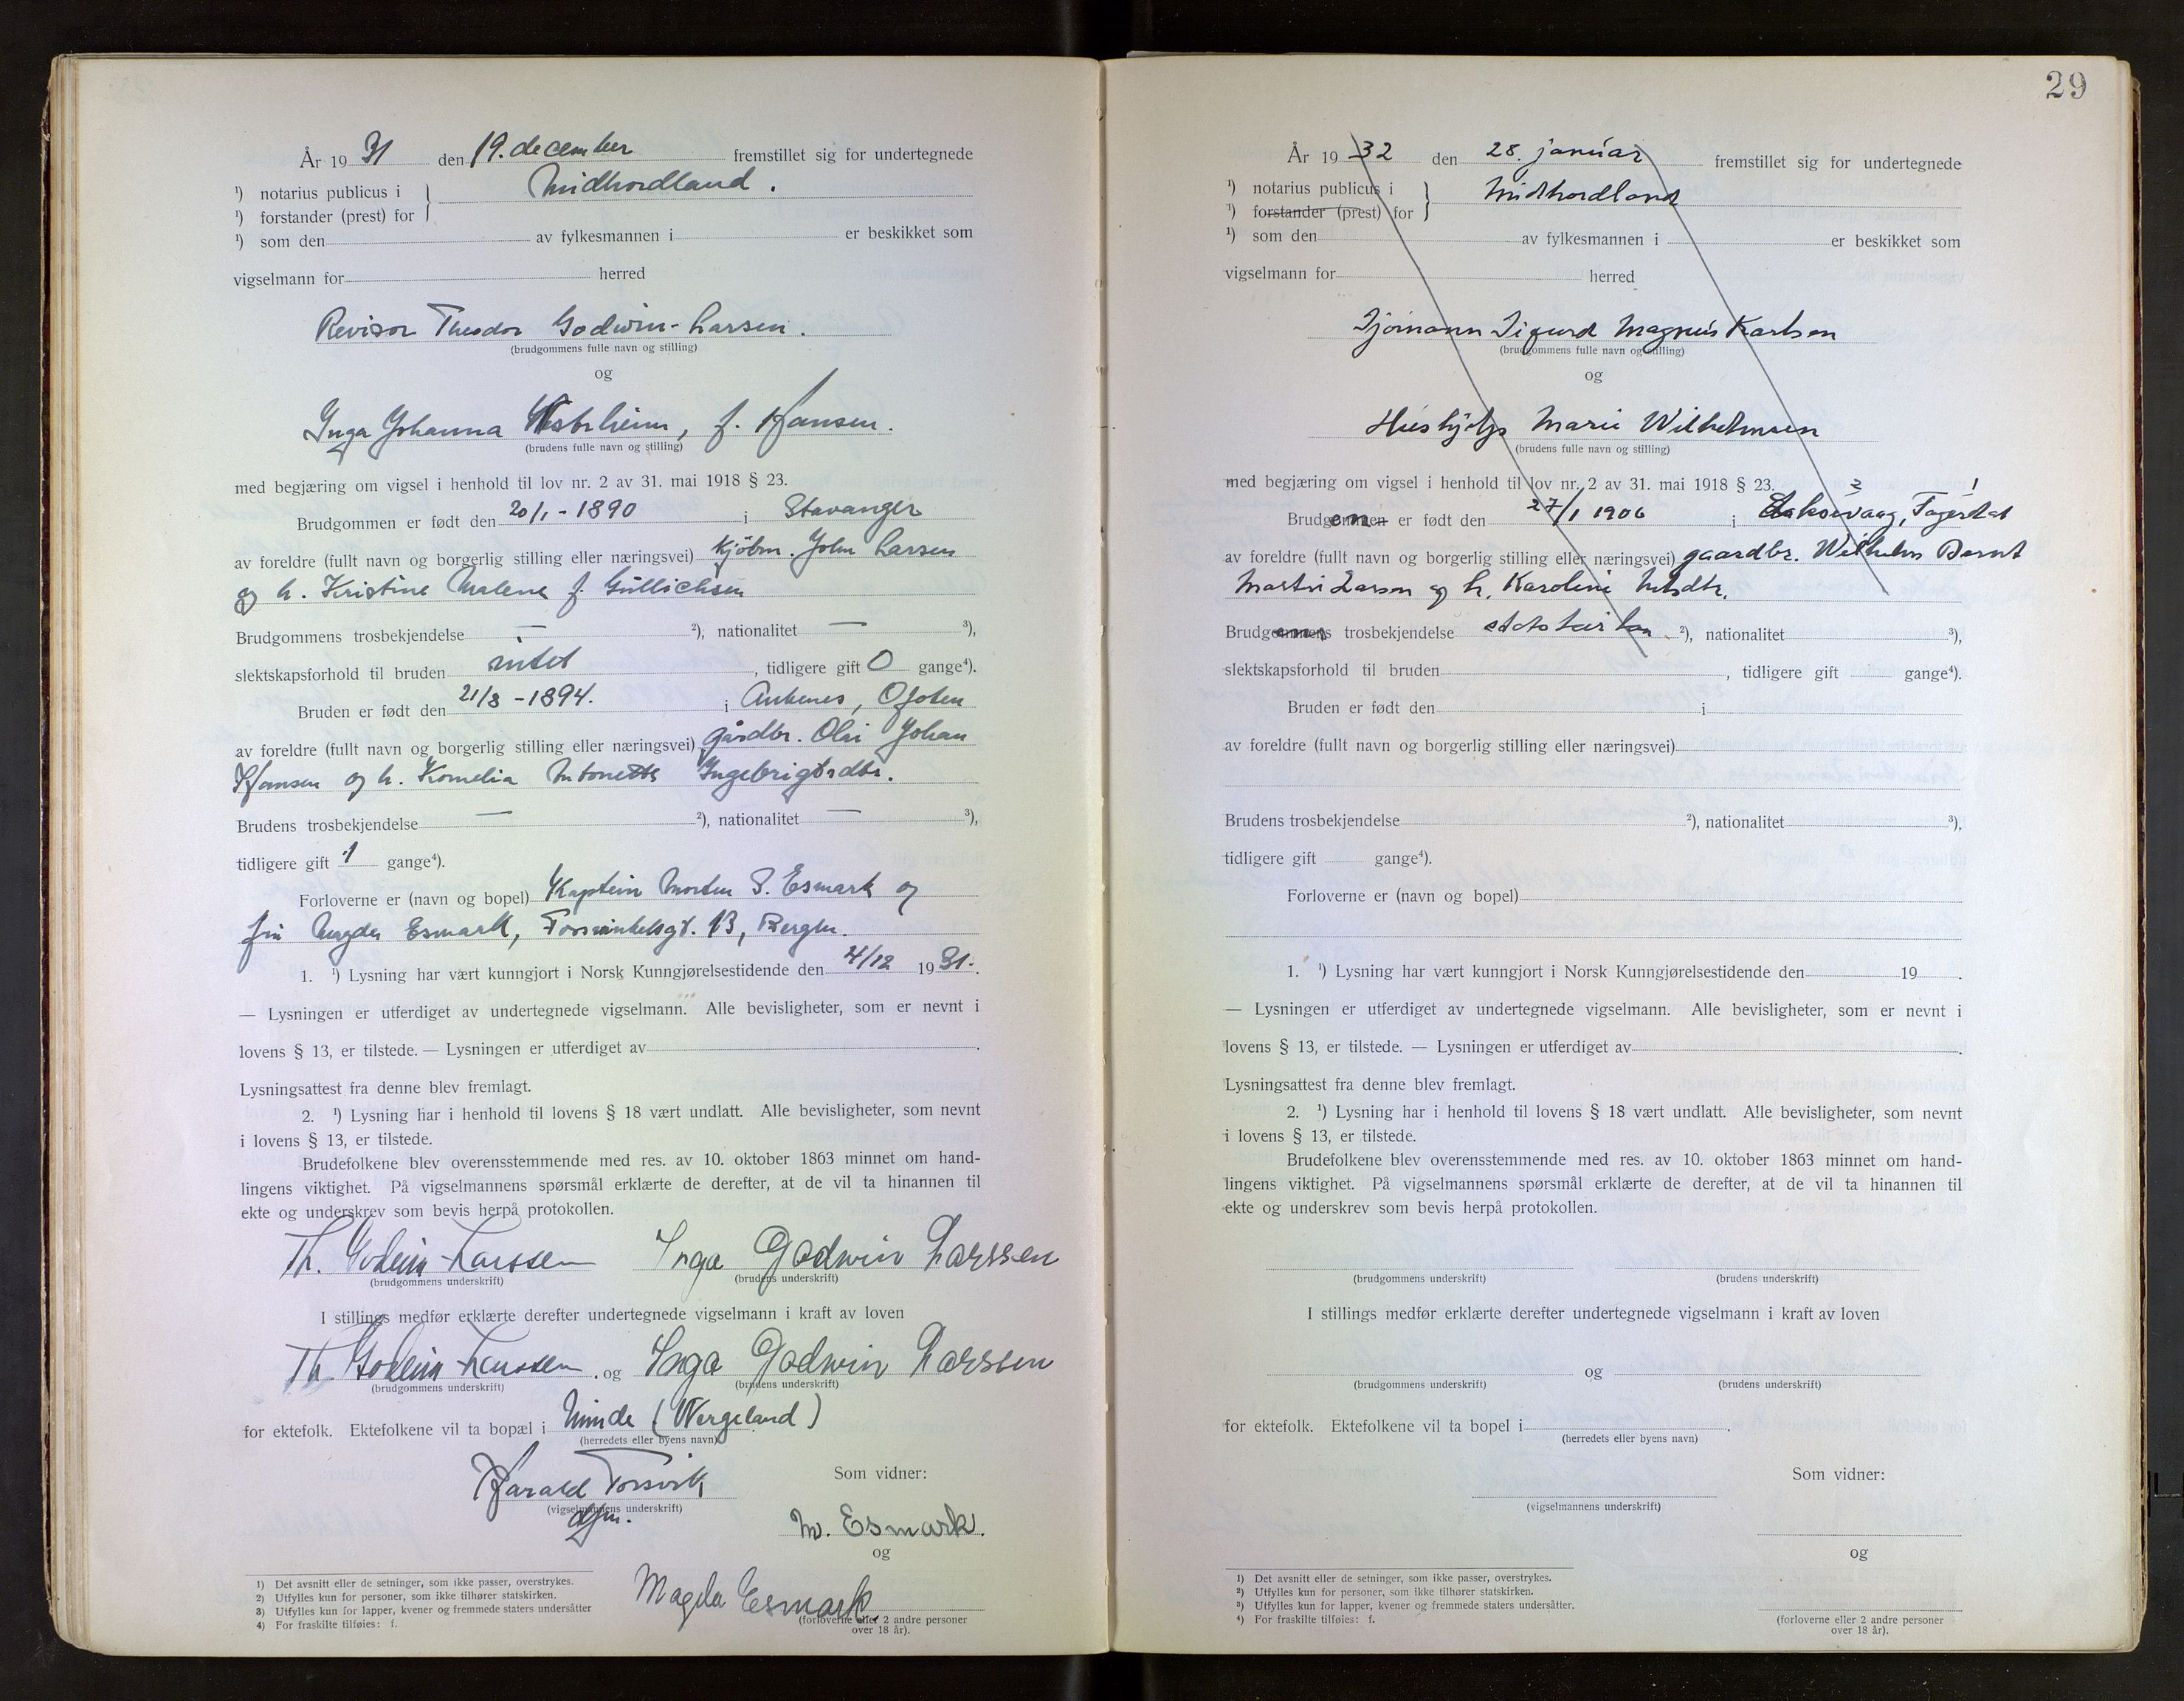 År 19 31 den 19. december fremstillet sig for undertegnede
¹) notarius publicus i Midhordland.
¹) forstander (prest) for
¹) som den av fylkesmannen i er beskikket som
vigselmann for herred
Revisor Theodor Godwin-Larsen.
(brudgommens fulle navn og stilling)
og
Inga Johanna Vestrheim, f. Hansen.
(brudens fulle navn og stilling)
med begjæring om vigsel i henhold til lov nr. 2 av 31. mai 1918 § 23.
Brudgommen er født den 20/1 - 1890 i Stavanger
av foreldre (fullt navn og borgerlig stilling eller næringsvei) kjøbm. John Larsen
og h. Kristine Malene f. Gullichsen
Brudgommens trosbekjendelse — ²), nationalitet — ³),
slektskapsforhold til bruden intet, tidligere gift 0 gange⁴).
Bruden er født den 21/8 - 1894. i Ankenes, Ofoten
av foreldre (fullt navn og borgerlig stilling eller næringsvei) gårdbr. Olai Johan
Hansen og h. Kornelia Antonette Ingebrigtsdtr.
Brudens trosbekjendelse — ²), nationalitet — ³),
tidligere gift 1 gange⁴).
Forloverne er (navn og bopel) Kaptein Morten S. Esmark og
fru Magda Esmark, 13, Bergen.
1. ¹) Lysning har vært kunngjort i Norsk Kunngjørelsestidende den 4/12 19 31.
— Lysningen er utferdiget av undertegnede vigselmann. Alle bevisligheter, som er nevnt i
lovens § 13, er tilstede. — Lysningen er utferdiget av .
Lysningsattest fra denne blev fremlagt.
2. ¹) Lysning har i henhold til lovens § 18 vært undlatt. Alle bevisligheter, som nevnt
i lovens § 13, er tilstede.
Brudefolkene blev overensstemmende med res. av 10. oktober 1863 minnet om hand-
lingens viktighet. På vigselmannens spørsmål erklærte de derefter, at de vil ta hinannen til
ekte og underskrev som bevis herpå protokollen.
Th. Godwin-Larssen Inga Godwin Larssen
(brudgommens underskrift) (brudens underskrift)
I stillings medfør erklærte derefter undertegnede vigselmann i kraft av loven
Th. Godwin-Larssen og Inga Godwin Larssen
(brudgommens underskrift) (brudens underskrift)
for ektefolk. Ektefolkene vil ta bopæl i Minde (Wergeland)
(herredets eller byens navn)
Harald Torsvik
(vigselmannens underskrift)
Som vidner:
M. Esmark.
og
Magda Esmark.
(forloverne eller 2 andre personer
over 18 år).
1) Det avsnitt eller de setninger, som ikke passer, overstrykes.
2) Utfylles kun for personer, som ikke tilhører statskirken.
3) Utfylles kun for lapper, kvener og fremmede staters undersåtter
4) For fraskilte tilføies: f.
29
År 19 32 den 28. januar fremstillet sig for undertegnede
¹) notarius publicus i Midhordland
¹) forstander (prest) for
¹) som den av fylkesmannen i er beskikket som
vigselmann for herred
Sjömann Sigurd Magnus Karlsen
(brudgommens fulle navn og stilling)
og
Hushjelp Marie Wilhelmsen
(brudens fulle navn og stilling)
med begjæring om vigsel i henhold til lov nr. 2 av 31. mai 1918 § 23.
2 1
Bruden er født den 27/1 1906 i Laksevaag,
av foreldre (fullt navn og borgerlig stilling eller næringsvei) gaardbr. Wilhelm Bernt
Martin Larsen og h. Karoline
Brudens trosbekjendelse statskirken ²), nationalitet ³),
slektskapsforhold til bruden , tidligere gift gange⁴).
Bruden er født den i
av foreldre (fullt navn og borgerlig stilling eller næringsvei)
Brudens trosbekjendelse ²), nationalitet ³),
tidligere gift gange⁴).
Forloverne er (navn og bopel)
1. ¹) Lysning har vært kunngjort i Norsk Kunngjørelsestidende den 19 .
— Lysningen er utferdiget av undertegnede vigselmann. Alle bevisligheter, som er nevnt i
lovens § 13, er tilstede. — Lysningen er utferdiget av .
Lysningsattest fra denne blev fremlagt.
2. ¹) Lysning har i henhold til lovens § 18 vært undlatt. Alle bevisligheter, som nevnt
i lovens § 13, er tilstede.
Brudefolkene blev overensstemmende med res. av 10. oktober 1863 minnet om hand-
lingens viktighet. På vigselmannens spørsmål erklærte de derefter, at de vil ta hinannen til
ekte og underskrev som bevis herpå protokollen.
(brudgommens underskrift) (brudens underskrift)
I stillings medfør erklærte derefter undertegnede vigselmann i kraft av loven
og
(brudgommens underskrift) (brudens underskrift)
for ektefolk. Ektefolkene vil ta bopel i .
(herredets eller byens navn)
Som vidner:
(vigselmannens underskrift)
og
(forloverne eller 2 andre personer
over 18 år).
1) Det avsnitt eller de setninger, som ikke passer, overstrykes.
2) Utfylles kun for personer, som ikke tilhører statskirken.
3) Utfylles kun for lapper, kvener og fremmede staters undersåtter.
4) For fraskilte tilføies: f.